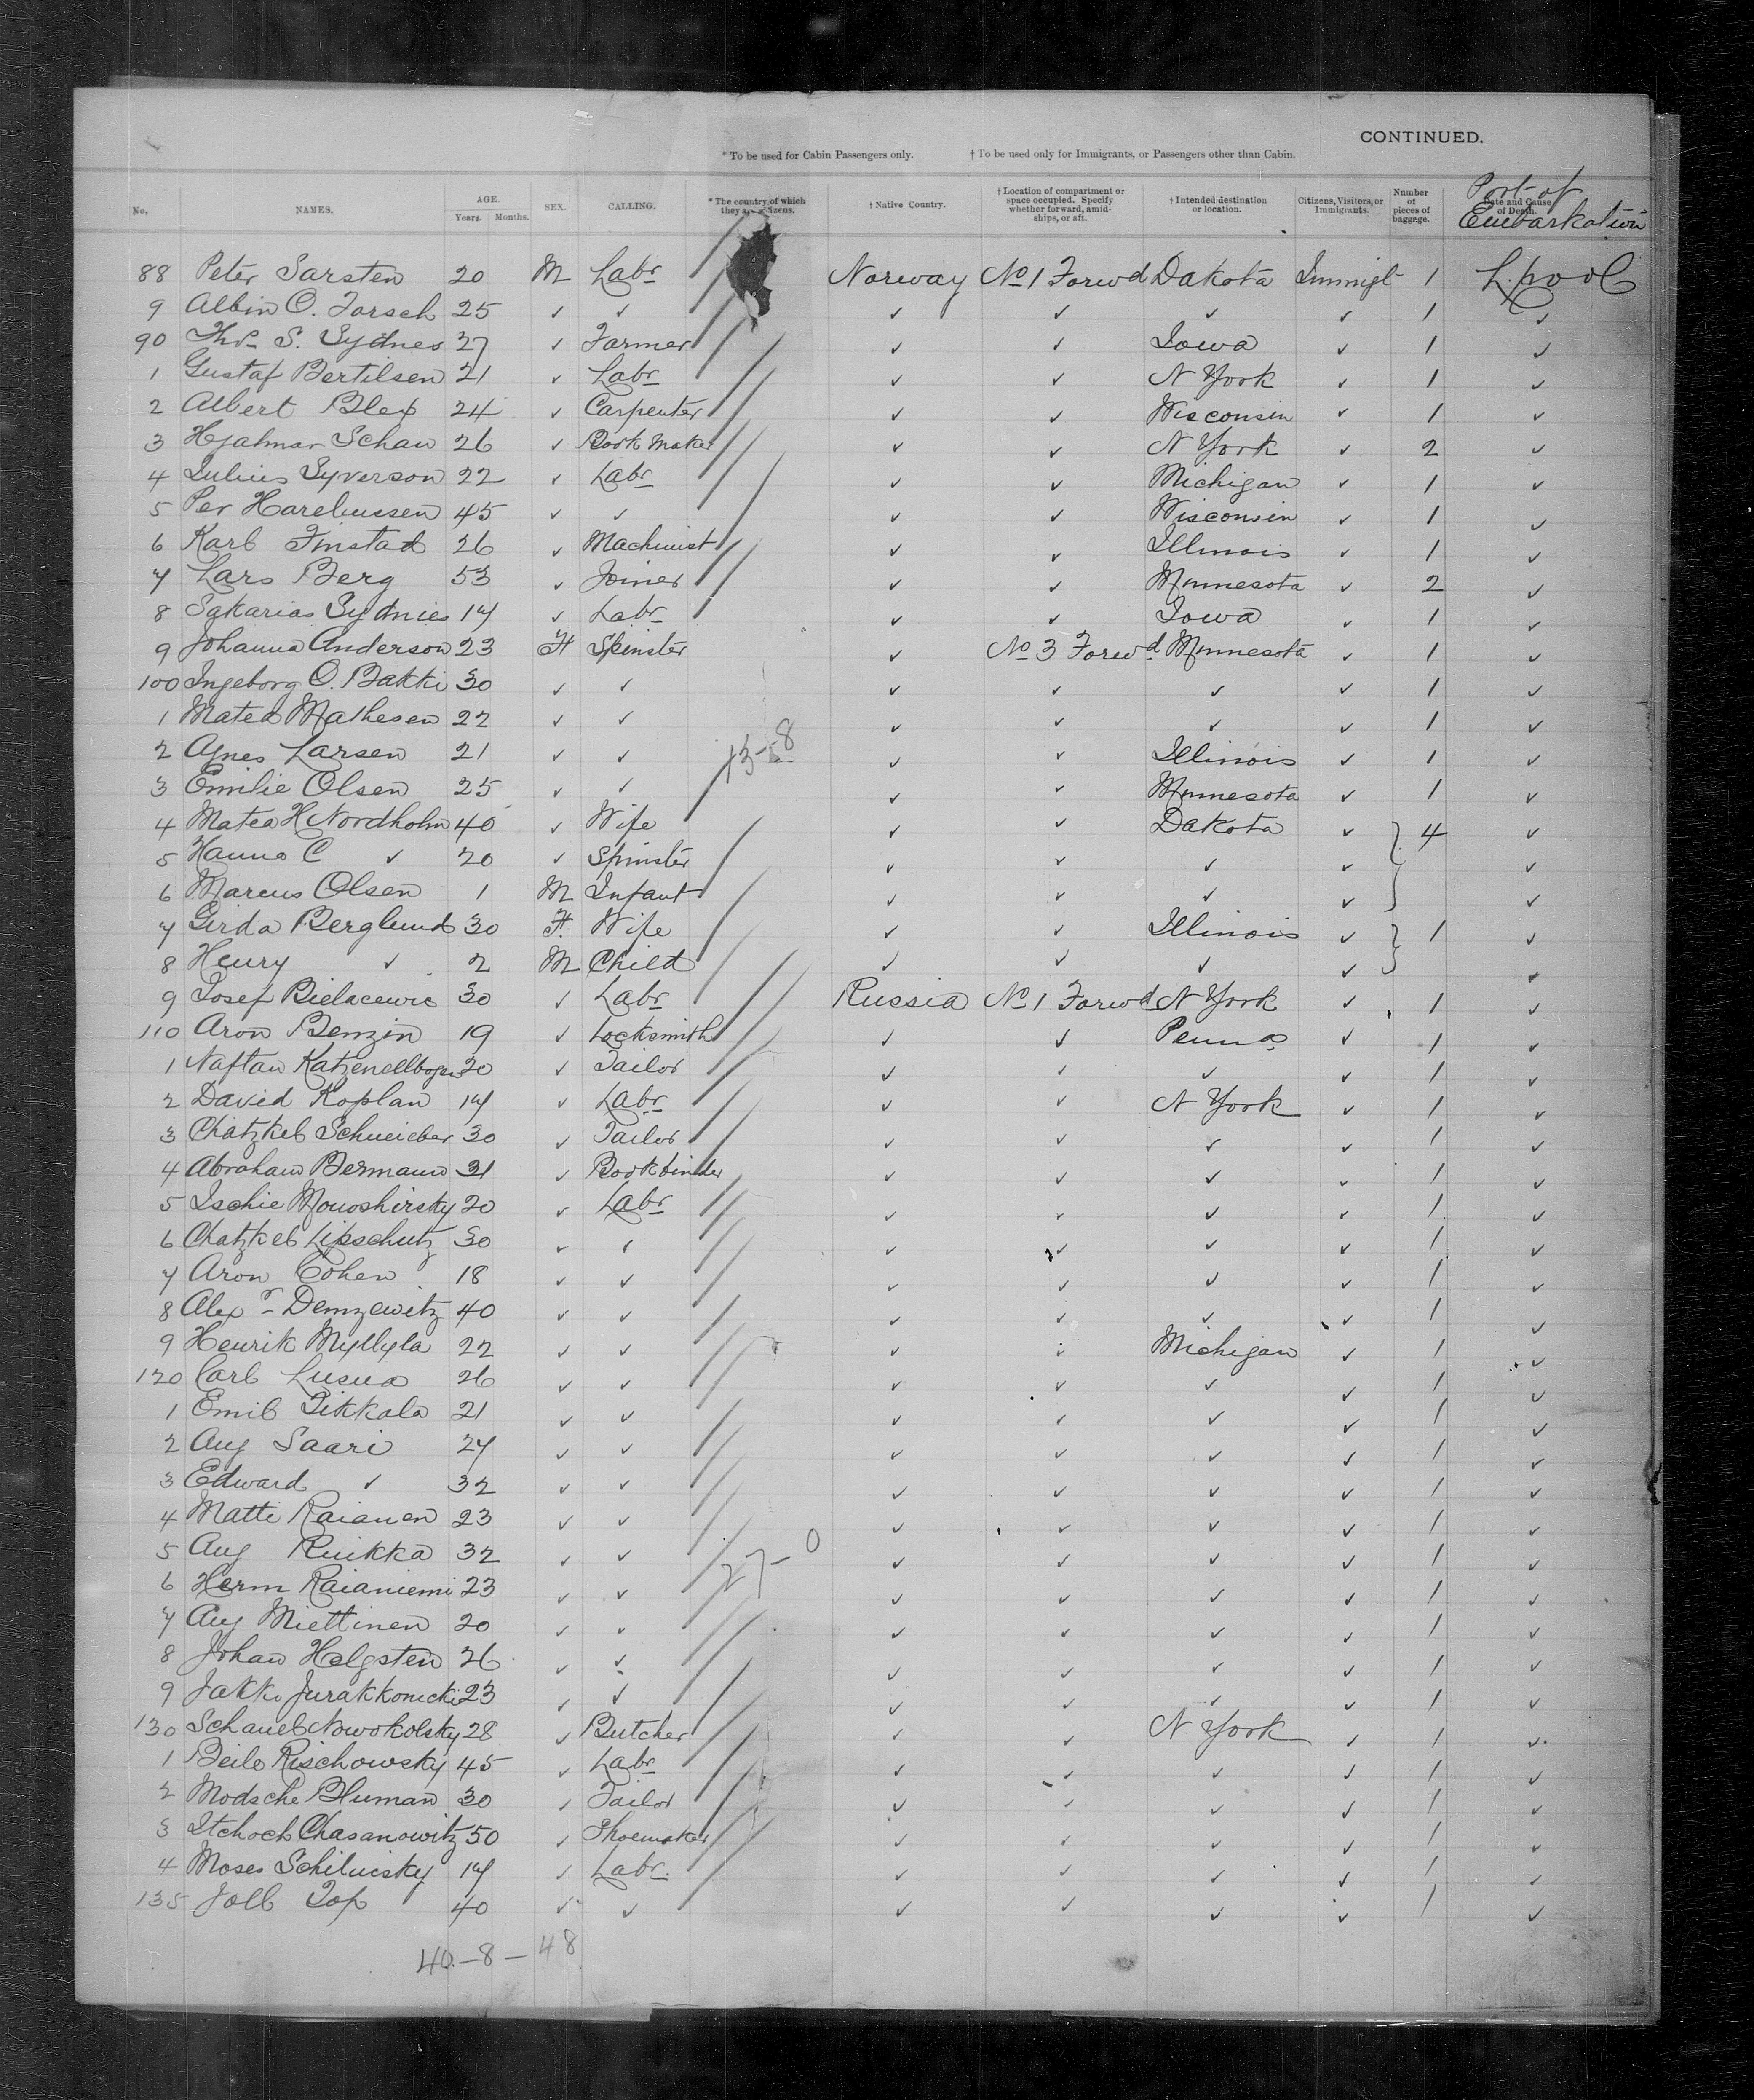 CONTINUED.
* To be used for Cabin Passengers only. † To be used only for Immigrants, or Passengers other than Cabin.
No. NAMES. AGE. Years. Months. SEX. CALLING. * The country of which they are citizens. † Native Country. † Location of compartment or space occupied. Specify whether forward, amidships, or aft. † Intended destination or location. Citizens, Visitors, or Immigrants. Number of pieces of baggage. Date and Cause of Death. Port of Embarkation
88 Peter Sarsten 20 M Labr Norway No 1 Forwd Dakota Immigt 1 L.pool
9 Albin O. Forsch 25 ✓ ✓ ✓ ✓ ✓ ✓ 1 ✓
90 Thos S. Sydnes 27 ✓ Farmer ✓ ✓ Iowa ✓ 1 ✓
1 Gustaf Bertilsen 21 ✓ Labr ✓ ✓ N York ✓ 1 ✓
2 Albert Blex 24 ✓ Carpenter ✓ ✓ Wisconsin ✓ 1 ✓
3 Hjalmar Schau 26 ✓ Book Maker ✓ ✓ N York ✓ 2 ✓
4 Julius Syverson 22 ✓ Labr ✓ ✓ Michigan ✓ 1 ✓
5 Per 45 ✓ ✓ ✓ ✓ Wisconsin ✓ 1 ✓
6 Karl Finstad 26 ✓ Machinist ✓ ✓ Illinois ✓ 1 ✓
7 Lars Berg 53 ✓ Joiner ✓ ✓ Minnesota ✓ 2 ✓
8 Sakarias Sydnies 17 ✓ Labr ✓ ✓ Iowa ✓ 1 ✓
9 Johanna Anderson 23 F Spinster ✓ No 3 Forwd Minnesota ✓ 1 ✓
100 Ingeborg O. Bakki 30 ✓ ✓ ✓ ✓ ✓ ✓ 1 ✓
1 Matea Mathesen 22 ✓ ✓ ✓ ✓ ✓ ✓ 1 ✓
2 Agnes Larsen 21 ✓ ✓ 13-8 ✓ ✓ Illinois ✓ 1 ✓
3 Emilie Olsen 25 ✓ ✓ ✓ ✓ Minnesota ✓ 1 ✓
4 Matea H Nordholm 40 ✓ Wife ✓ ✓ Dakota ✓ 4 ✓
5 Hanna C ✓ 20 ✓ Spinster ✓ ✓ ✓ ✓ ✓
6 Marcus Olsen 1 M Infant ✓ ✓ ✓ ✓ ✓
7 Girda Berglund 30 F. Wife ✓ ✓ Illinois ✓ 1 ✓
8 Henry ✓ 2 M Child ✓ ✓ ✓ ✓ ✓
9 Josef Bielacewic 30 ✓ Labr Russia No 1 Forwd N York ✓ 1 ✓
110 Aron Benzin 19 ✓ Locksmith ✓ ✓ Penna ✓ 1 ✓
1 Naftan Katzenellbogen 20 ✓ Tailor ✓ ✓ ✓ ✓ 1 ✓
2 David Koplan 17 ✓ Labr ✓ ✓ N York ✓ 1 ✓
3 Chatzkel Schneieber 30 ✓ Tailor ✓ ✓ ✓ ✓ 1 ✓
4 Abraham Bermann 31 ✓ Bookbinder ✓ ✓ ✓ ✓ 1 ✓
5 Ischie Monoshirsky 20 ✓ Labr ✓ ✓ ✓ ✓ 1 ✓
6 Chatzkel Lipschutz 30 ✓ ✓ ✓ ✓ ✓ ✓ 1 ✓
7 Aron Cohen 18 ✓ ✓ ✓ ✓ ✓ ✓ 1 ✓
8 Alexr Demzewitz 40 ✓ ✓ ✓ ✓ ✓ ✓ 1 ✓
9 Henrik Myllyla 22 ✓ ✓ ✓ ✓ Michigan ✓ 1 ✓
120 Carl Lusua 26 ✓ ✓ ✓ ✓ ✓ ✓ 1 ✓
1 Emil Tikkala 21 ✓ ✓ ✓ ✓ ✓ ✓ 1 ✓
2 Aug Saari 27 ✓ ✓ ✓ ✓ ✓ ✓ 1 ✓
3 Edward ✓ 32 ✓ ✓ ✓ ✓ ✓ ✓ 1 ✓
4 Matti Raianen 23 ✓ ✓ ✓ ✓ ✓ ✓ 1 ✓
5 Aug Ruikka 32 ✓ ✓ 27-0 ✓ ✓ ✓ ✓ 1 ✓
6 Herm Raianiemi 23 ✓ ✓ ✓ ✓ ✓ ✓ 1 ✓
7 Aug Miettinen 20 ✓ ✓ ✓ ✓ ✓ ✓ 1 ✓
8 Johan Helgsten 26 ✓ ✓ ✓ ✓ ✓ ✓ 1 ✓
9 Jakko 23 ✓ ✓ ✓ ✓ ✓ ✓ 1 ✓
130 Schauel Nowokolsky 28 ✓ Butcher ✓ ✓ N York ✓ 1 ✓
1 Beile Rischowsky 45 ✓ Labr ✓ ✓ ✓ ✓ 1 ✓
2 Modsche Bluman 30 ✓ Tailor ✓ ✓ ✓ ✓ 1 ✓
3 Itchock Chasanowitz 50 ✓ Shoemaker ✓ ✓ ✓ ✓ 1 ✓
4 Moses Schilinsky 17 ✓ Labr ✓ ✓ ✓ ✓ 1 ✓
135 Joll Top 40 ✓ ✓ ✓ ✓ ✓ ✓ 1 ✓
40-8-48